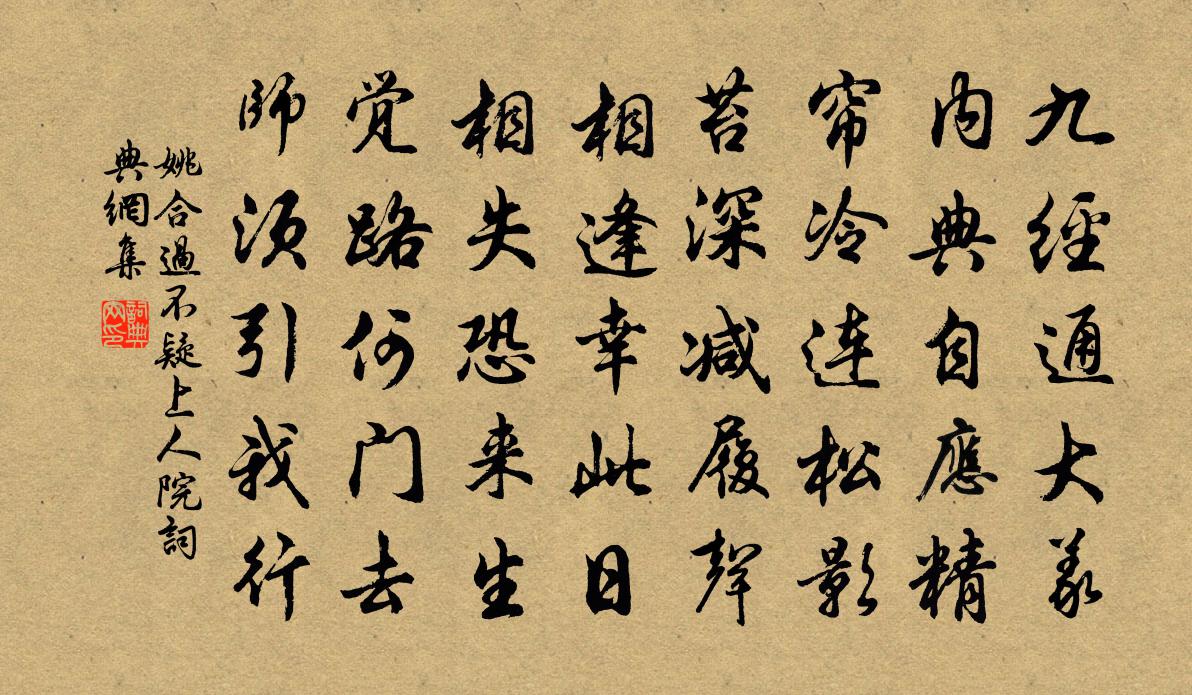 九經通大義
内典自應精
帘冷连松影
苔深减履聲
相逢幸此日
相失恐来生
觉路何门去
師须引我行
姚合過不疑上人院詞
典網集
詞典
网印